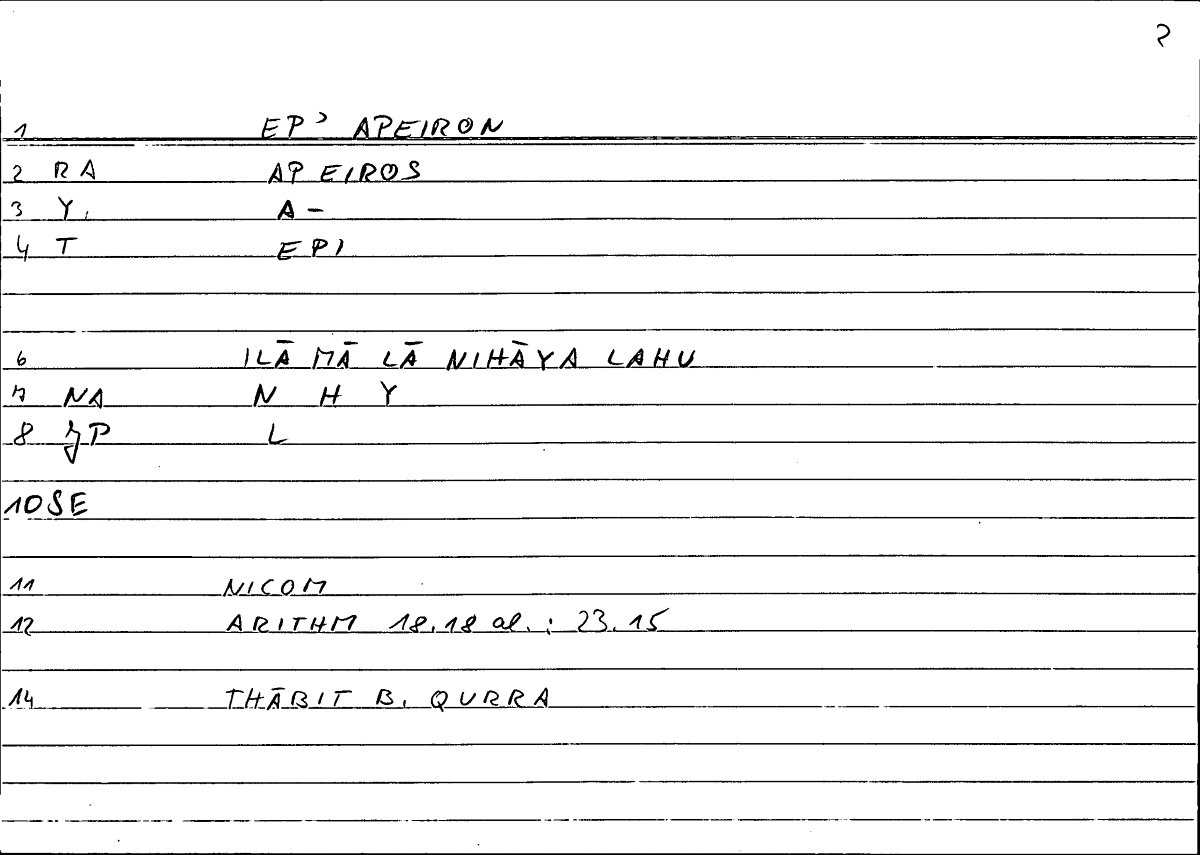 2
1 EP' APEIRON
2 RA APEIROS
3 Y. A-
4 T EPI
6 ILĀ MĀ LĀ NIHĀYA LAHU
7 NA N H Y
8 P L
10 SE
11 NICOM
12 ARITHM 18.18 al. : 23.15
14 THĀBIT B. QURRA